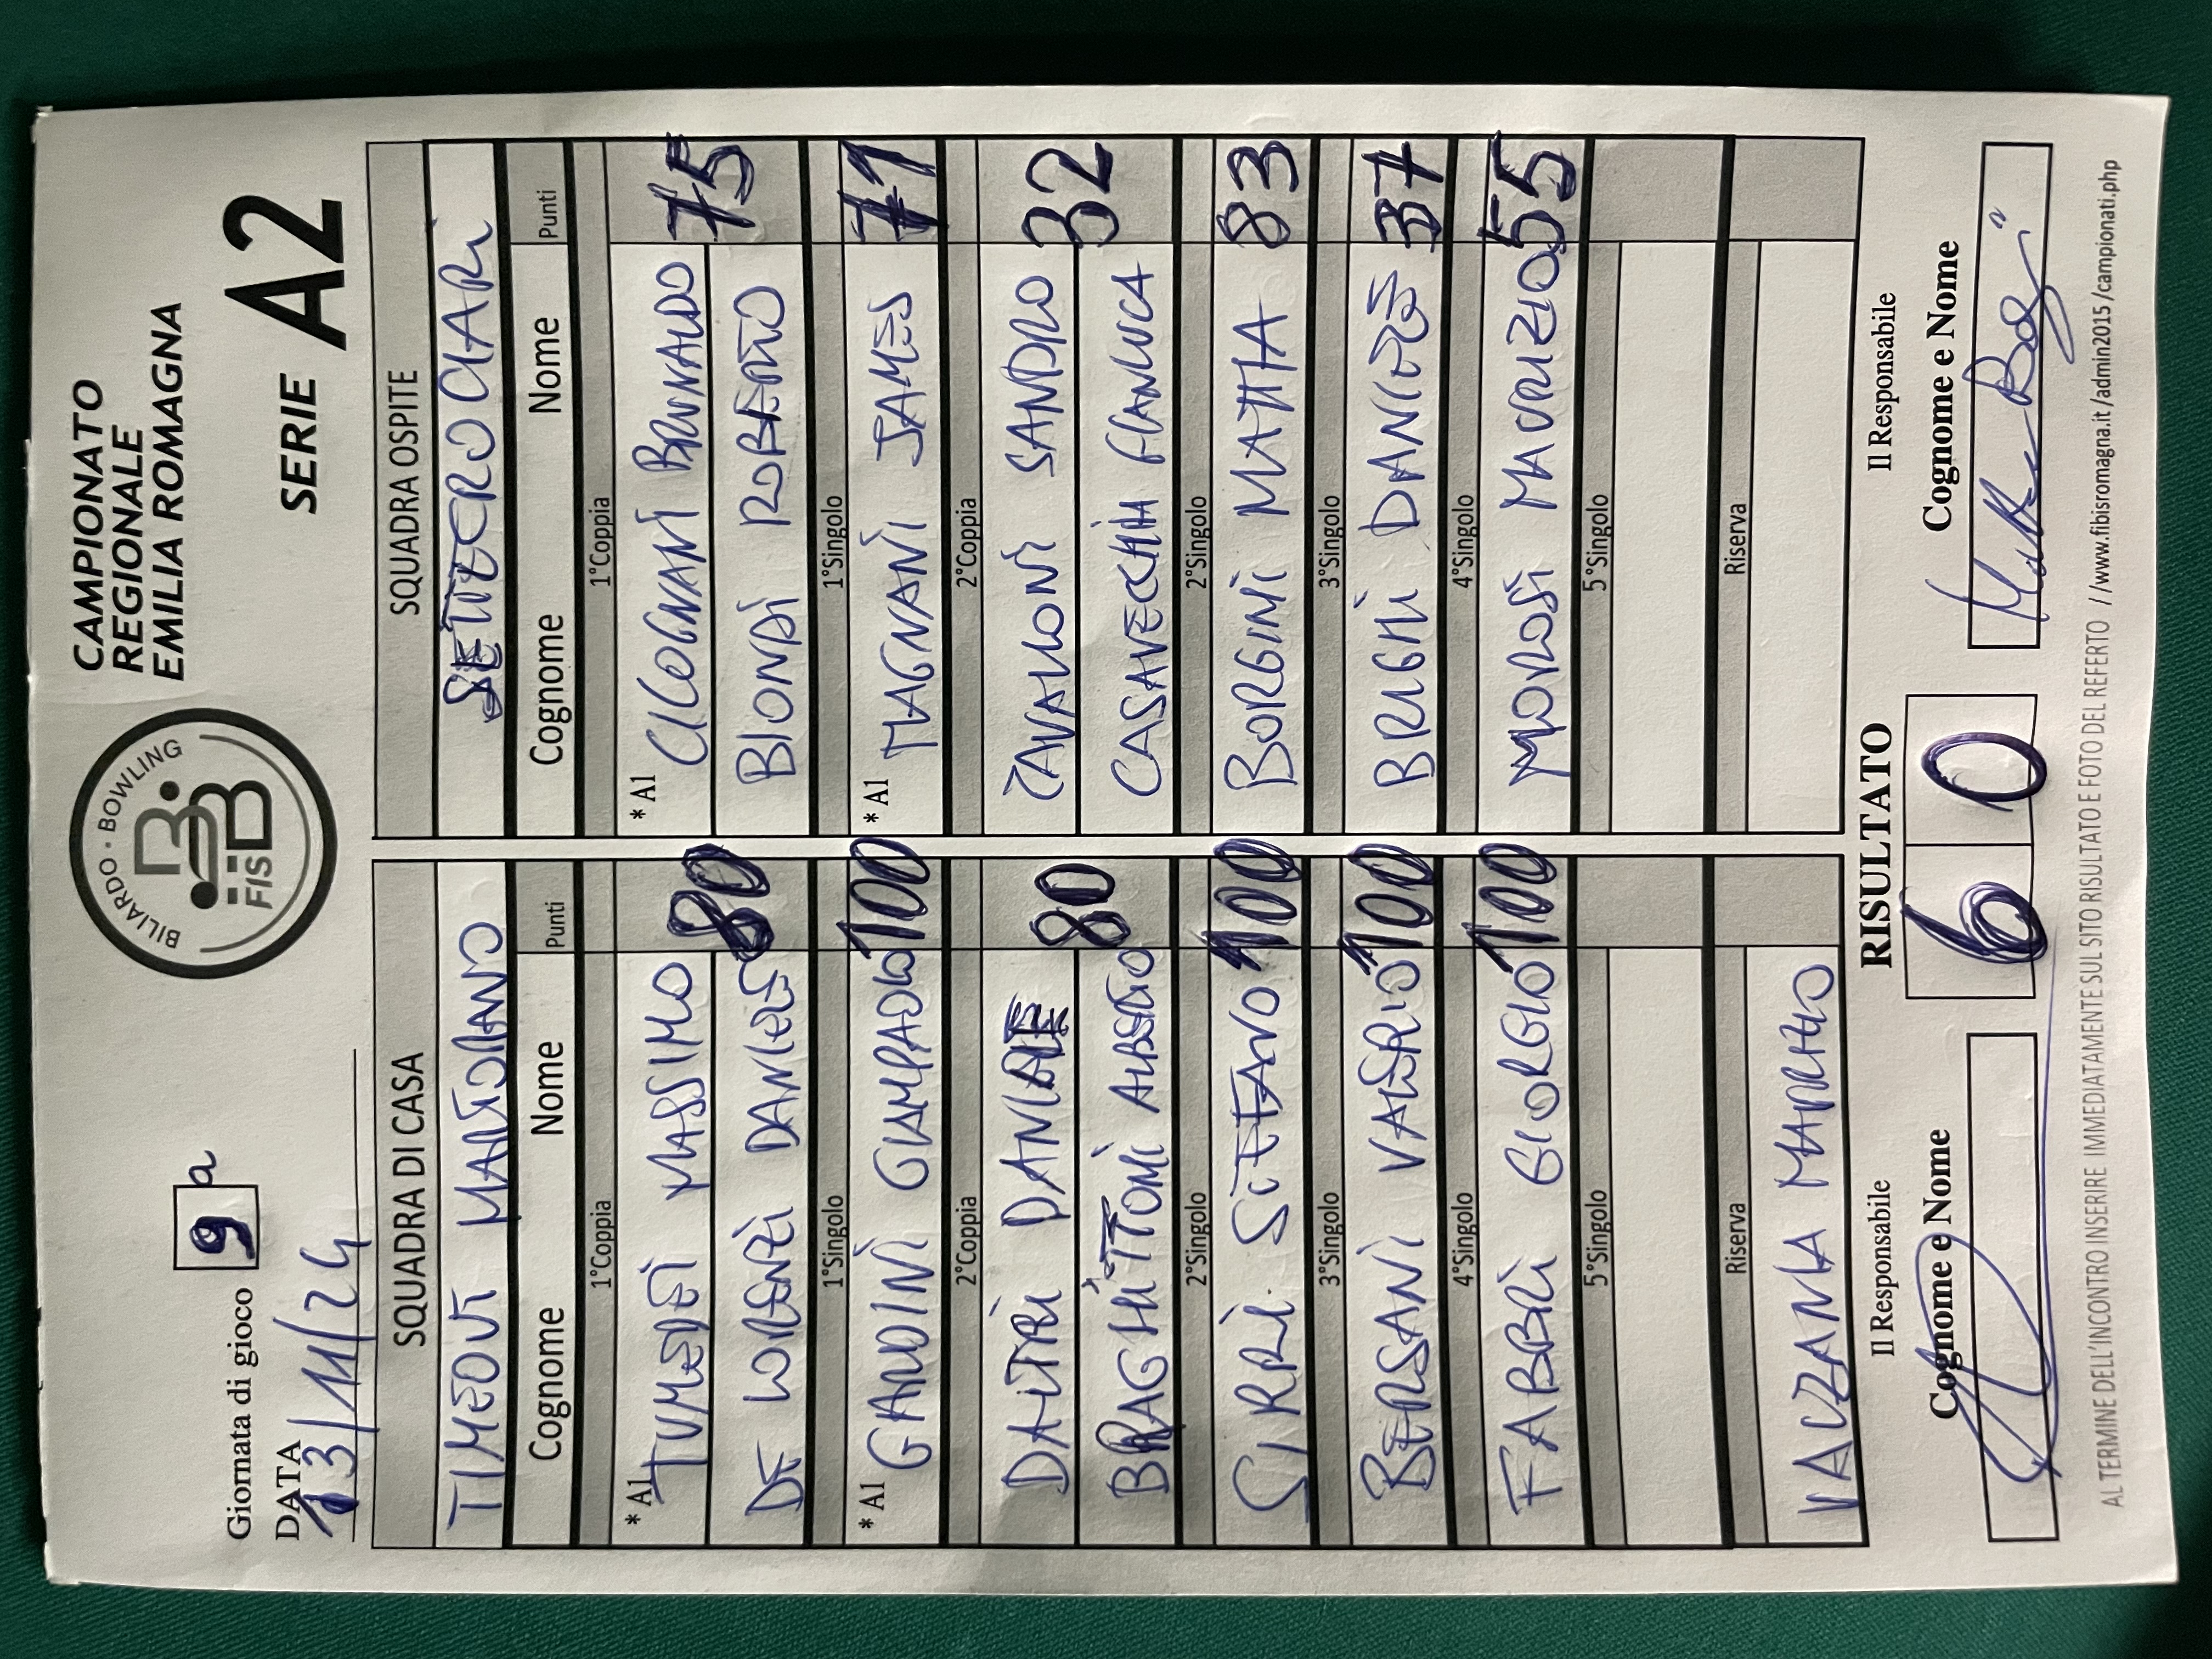 BILIARDO · BOWLING
FISBB
CAMPIONATO
REGIONALE
EMILIA ROMAGNA
SERIE A2
Giornata di gioco 9a
DATA
13/11/24
SQUADRA DI CASA
TIMEOUT MARTORANO
Cognome Nome Punti
1°Coppia
* A1 TUMEDEI MASSIMO
80
DE LORENZI DANIELE
1°Singolo
* A1 GAUDINI GIAMPAOLO 100
2°Coppia
DALTRI
80
BRAGHITTONI ALBERTO
2°Singolo
SIRRI STEFANO 100
3°Singolo
BERSANI VALERIO 100
4°Singolo
FABBRI GIORGIO 100
5°Singolo
Riserva
VALZANIA
SQUADRA OSPITE
SETTECROCIARI
Cognome Nome Punti
1°Coppia
* A1 CICOGNANI BRUNALDO
75
BIONDI ROBERTO
1°Singolo
* A1 MAGNANI JAMES 71
2°Coppia
CAVALLONI SANDRO
32
CASAVECCHIA
2°Singolo
BORGINI MATTIA 83
3°Singolo
BRIGHI DANIELE 37
4°Singolo
MAURIZIO 55
5°Singolo
Riserva
RISULTATO
6 0
Il Responsabile
Cognome e Nome
Il Responsabile
Cognome e Nome
AL TERMINE DELL'INCONTRO INSERIRE IMMEDIATAMENTE SUL SITO RISULTATO E FOTO DEL REFERTO //www.fibisromagna.it/admin2015/campionati.php